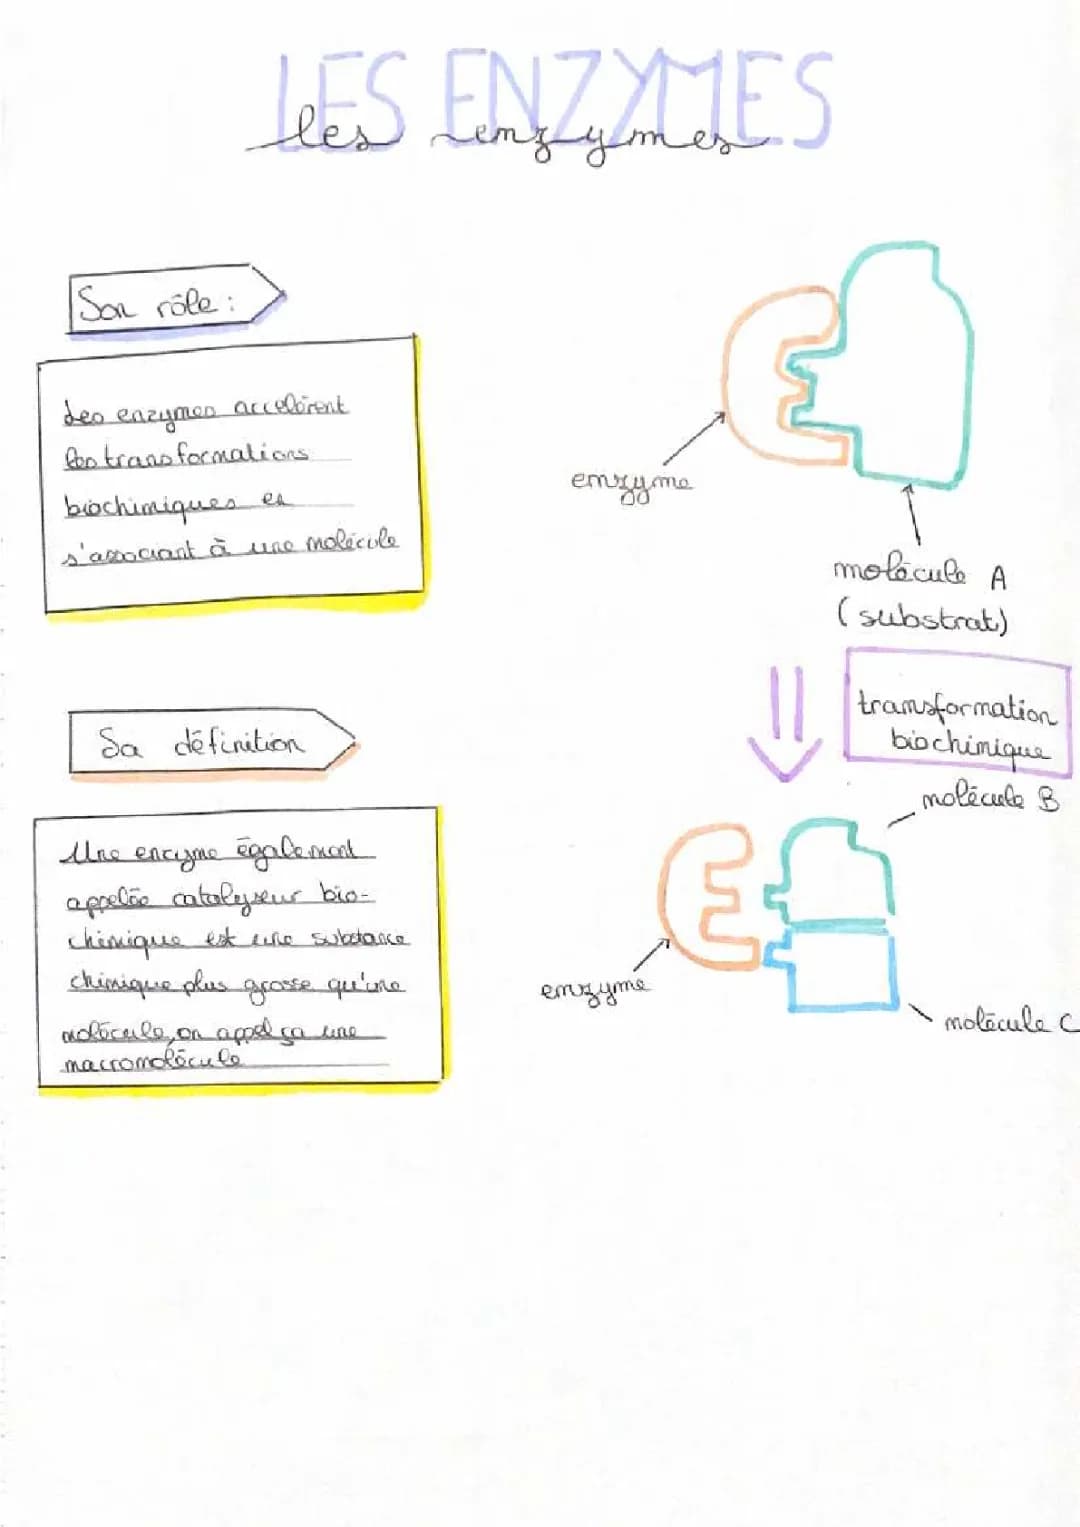 LES ENZYMES
les enzymes
Son rôle :
Les enzymes accelèrent
les transformations
biochimiques en
s'associant à une molécule
Sa définition
Une enzyme également
appelée catalyseur bio-
chimique est une substance
chimique plus grosse qu'une
molécule, on appel ça une
macromolécule
enzyme
molécule A
(substrat)
transformation
biochimique
molécule B
enzyme
molécule C